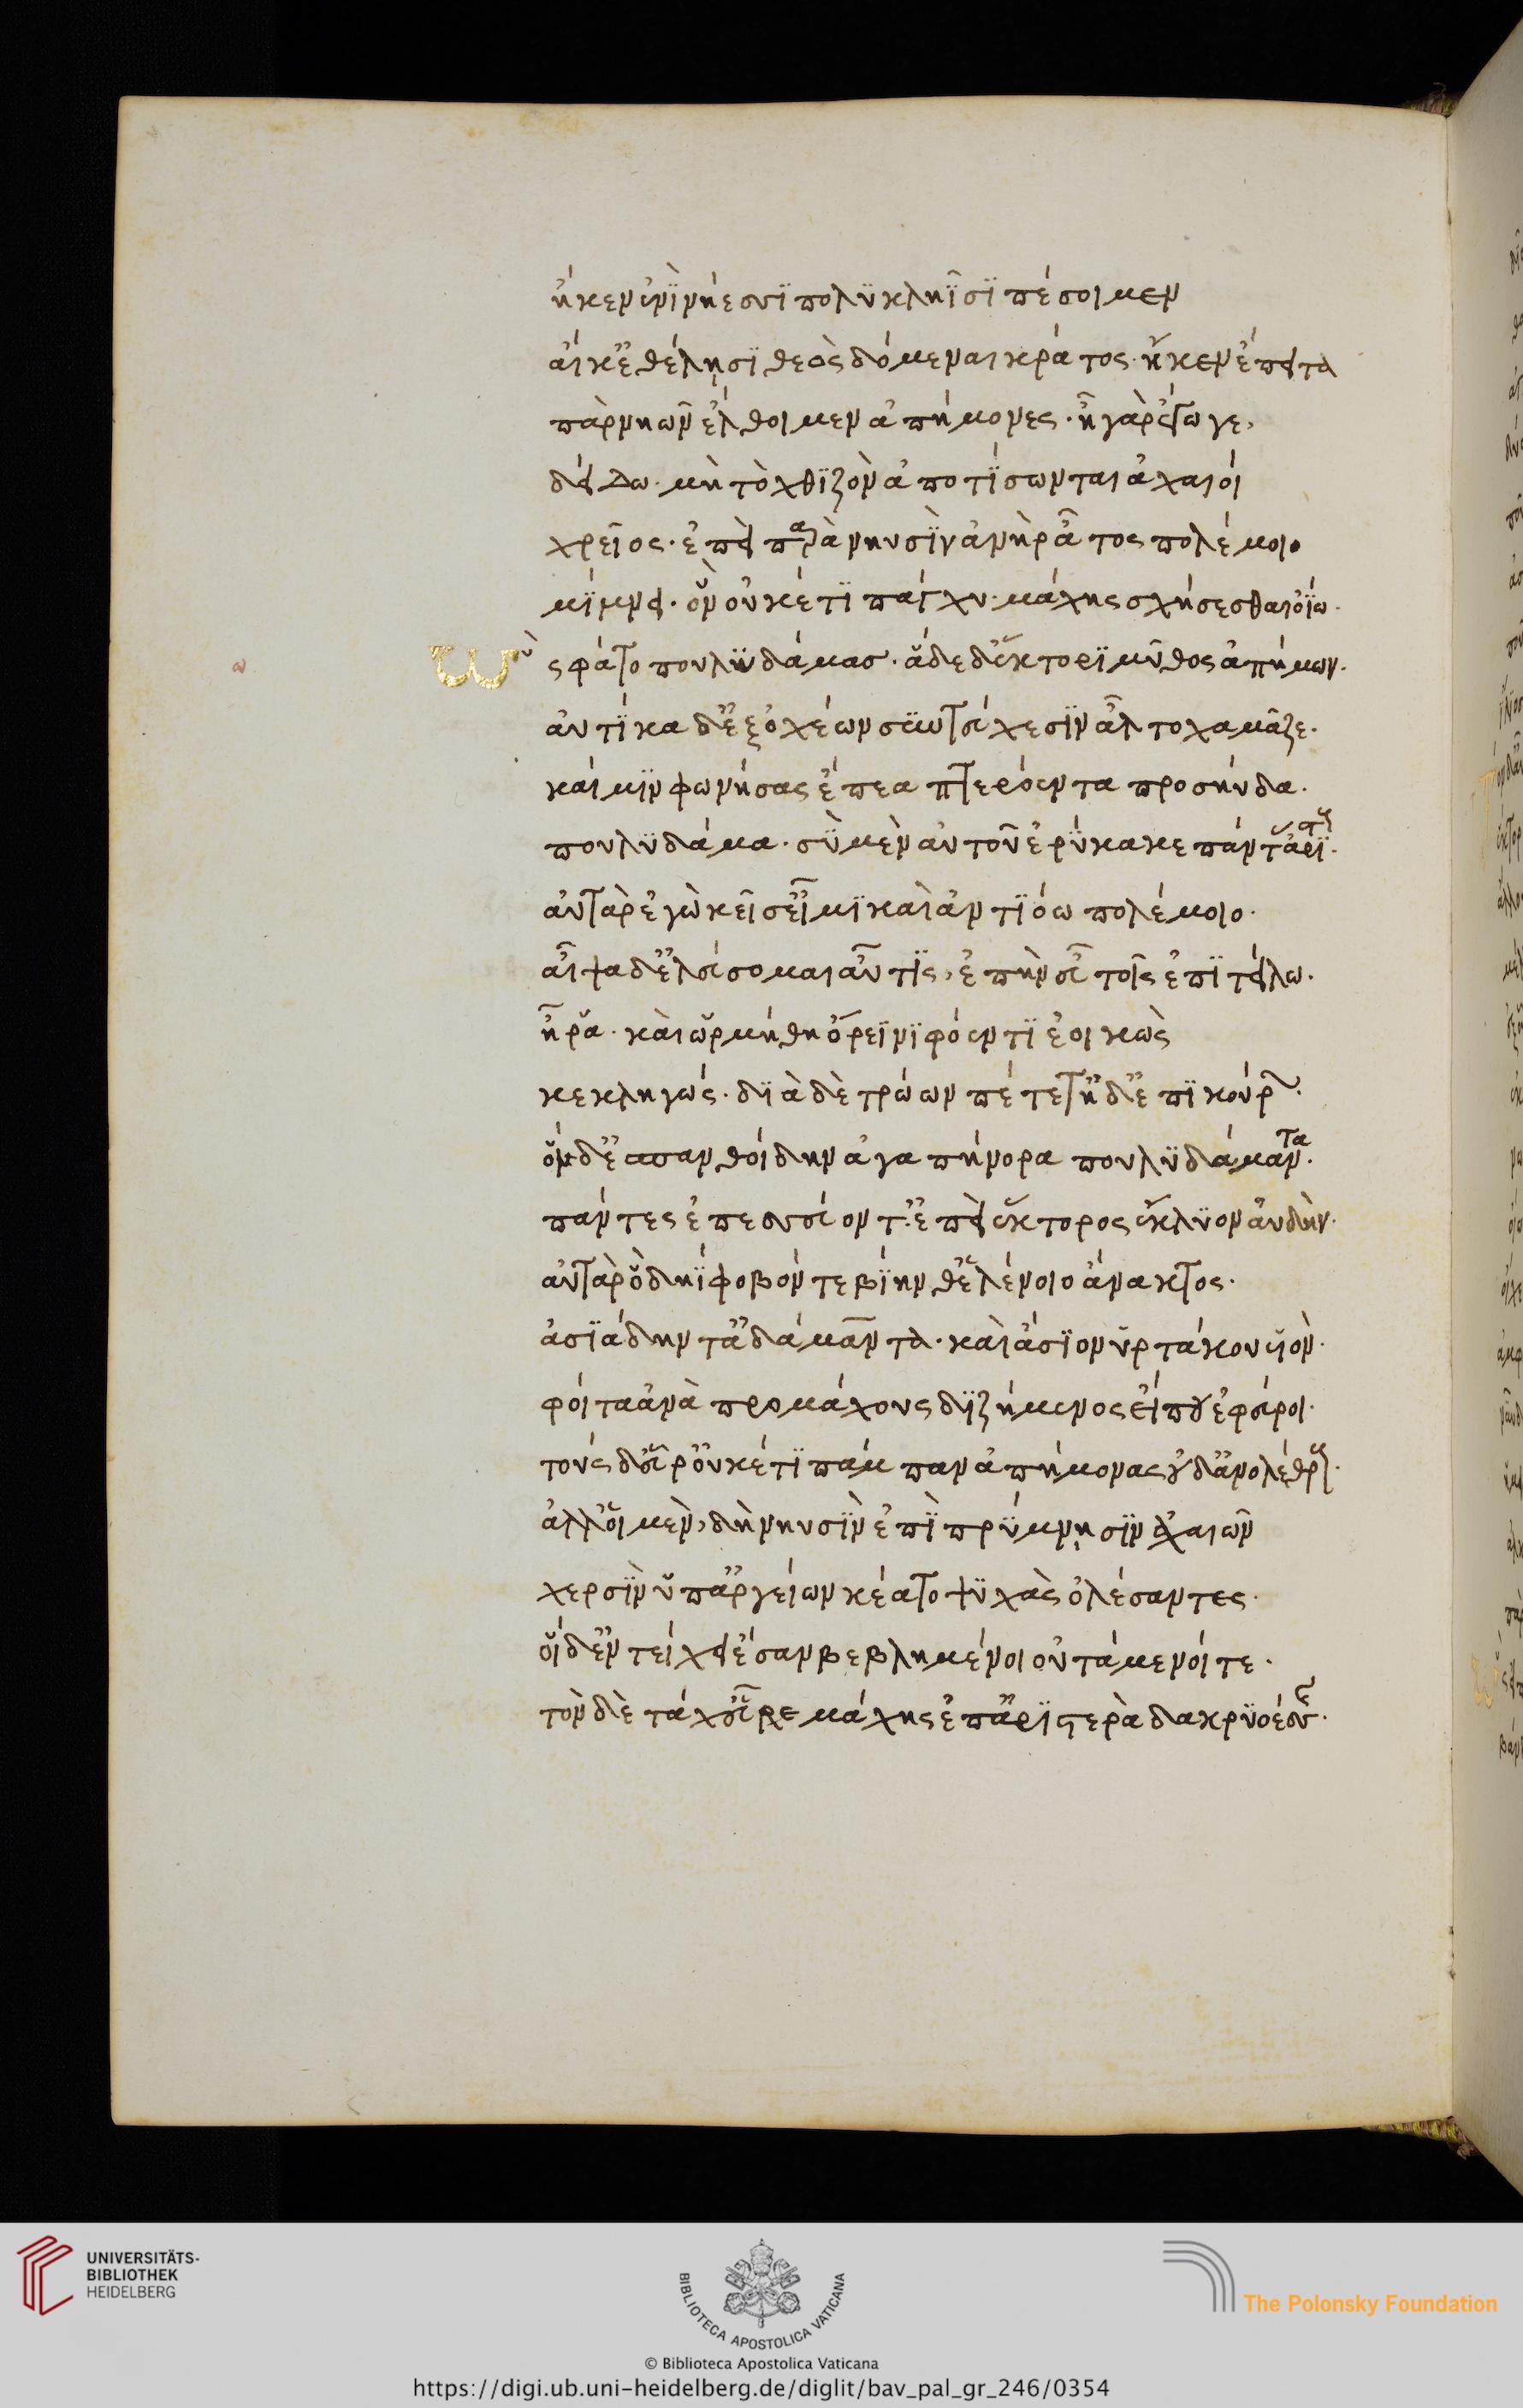 ἤ κεν ἐνὶ νήεσσι πολυκλήϊσι πέσοιμεν
αἴ κ' ἐθέλησι θεὸς δόμεναι κράτος· ἤ κεν ἔπειτα
πὰρ νηῶν ἔλθοιμεν ἀπήμονες· ἦ γὰρ ἔγωγε,
δείδω· μὴ τὸ χθιζὸν ἀποτίσωνται ἀχαιοί
χρεῖος· ἐπεὶ παρὰ νηυσὶν ἀνὴρ ἆτος πολέμοιο
μίμνει· ὃν οὐκέτι πάγχυ μάχης σχήσεσθαι ὀΐω·
ὣς φάτο πουλυδάμας· ἅδε δ' ἕκτορι μῦθος ἀπήμων·
αὐτίκα δ' ἐξ ὀχέων σὺν τεύχεσιν ἆλτο χαμᾶζε·
καί μιν φωνήσας ἔπεα πτερόεντα προσηύδα·
πουλυδάμα· σὺ μὲν αὐτοῦ ἐρύκακε πάντας ἀρίστους·
αὐτὰρ ἐγὼ κεῖσ' εἶμι καὶ ἀντιόω πολέμοιο·
αἶψα δ' ἐλεύσομαι αὖτις, ἐπὴν εὖ τοῖς ἐπιτείλω·
ἦ ῥα· καὶ ὡρμήθη ὄρεϊ νιφόεντι ἐοικὼς
κεκληγώς· διὰ δὲ τρώων πέτετ' ἠδ' ἐπικούρων·
οἱ δ' ἐς πανθοίδην ἀγαπήνορα πουλυδάμαντα·
πάντες ἐπεσσεύοντ'· ἐπεὶ ἕκτορος ἔκλυον αὐδήν·
αὐτὰρ ὃ δηΐφοβόν τε βίην θ' ἑλένοιο ἄνακτος·
ἀσιάδην τ' ἀδάμαντα· καὶ ἄσιον ὑρτάκου υἱόν·
φοίτα ἀνὰ προμάχους διζήμενος εἴ που ἐφεύροι·
τοὺς δ' εὗρ' οὐκέτι πάμπαν ἀπήμονας οὐδ' ἀνολέθρους·
ἀλλ' οἱ μὲν, δὴ νηυσὶν ἐπὶ πρύμνησιν ἀχαιῶν
χερσὶν ὑπ' ἀργείων κέατο ψυχὰς ὀλέσαντες·
οἱ δ' ἐν τείχει ἔσαν βεβλημένοι οὐτάμενοί τε·
τὸν δὲ τάχ' εὗρε μάχης ἐπ' ἀριστερὰ δακρυοέσσης·
UNIVERSITÄTS-
BIBLIOTHEK
HEIDELBERG
BIBLIOTECA APOSTOLICA VATICANA
The Polonsky Foundation
© Biblioteca Apostolica Vaticana
https://digi.ub.uni-heidelberg.de/diglit/bav_pal_gr_246/0354